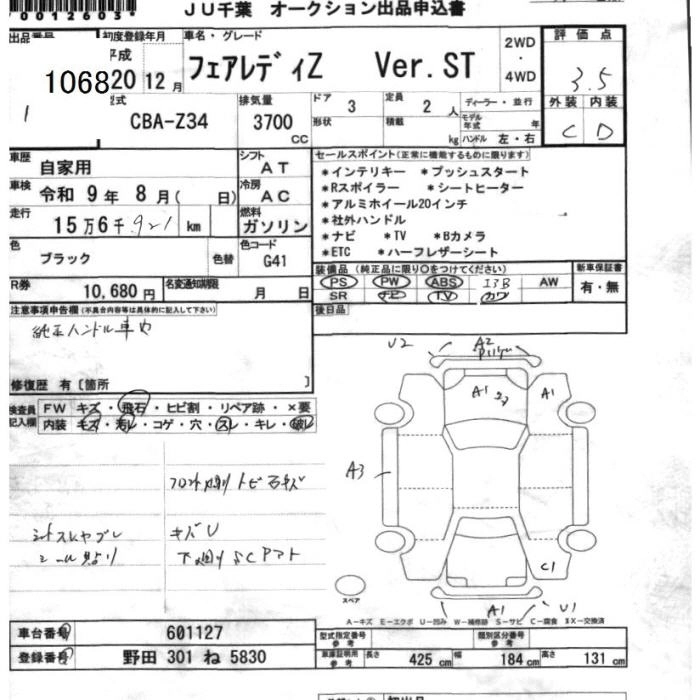 70012603
JU千葉 オークション出品申込書
出品番号 初度登録年月 車名・グレード 2WD・4WD 評価点
1068 平成 20 12月 フェアレディZ Ver.ST 3.5
1
型式 CBA-Z34 排気量 3700 CC ドア 3 定員 2 人 ディーラー・並行 外装 内装
形状 積載 kg モデル年式 年 ハンドル 左・右 C D
車歴 自家用 シフト AT セールスポイント(正常に機能するものに限ります)
車検 令和 9年 8月( 日) 冷房 AC
走行 15万6千921 km 燃料 ガソリン
*インテリキー *プッシュスタート
*Rスポイラー *シートヒーター
*アルミホイール20インチ
*社外ハンドル
*ナビ *TV *Bカメラ
*ETC *ハーフレザーシート
色 ブラック 色替 色コード G41
装備品(純正品に限り○をつけてください) 新車保証書
PS PW ABS エアB AW 有・無
SR ナビ TV カワ
R券 10,680円 名変通知期限 月 日
後日品
注意事項申告欄(不具合内容等は具体的に記入して下さい)
純正ハンドル車内
修復歴 有〔箇所 〕
検査員記入欄 FW キズ・飛石・ヒビ割・リペア跡・×要
内装 キズ・汚レ・コゲ・穴・スレ・キレ・破レ
フロント廻り トビ石キズ
シートスレヤブレ キズU
シール貼り 下廻りSCアト
U2 A2
A1 A1
A3
C1
A1 U1
スペア
A-キズ E-エクボ U-凹み W-補修跡 S-サビ C-腐食 XX-交換済
車台番号 601127 型式指定番号 参考 類別区分番号 参考
登録番号 野田 301 ね 5830 車庫証明用 参考 長さ 425cm 幅 184cm 高さ 131cm